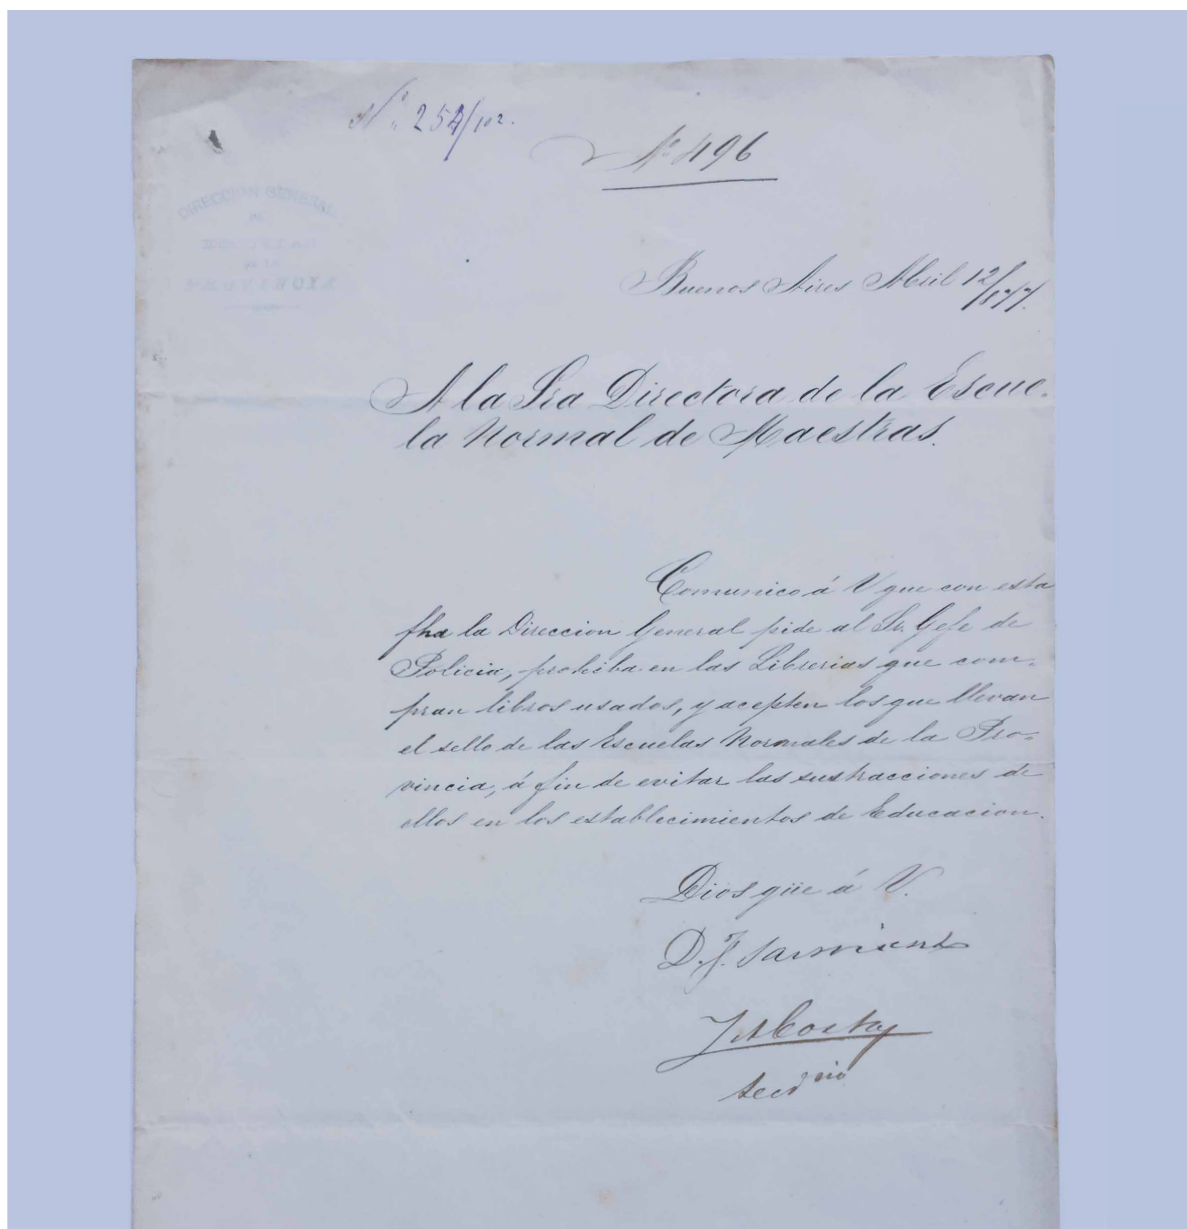 Nº 254/112.
Nº 496
DIRECCION GENERAL
DE
ESCUELAS
Buenos Aires Abril 12/877.
A la Sra Directora de la Escue-
la Normal de Maestras.
Comunico á V que con esta
fha la Direccion General pide al Sr. Gefe de
Policia, prohiba en las Librerias que com-
pran libros usados, y acepten los que llevan
el sello de las Escuelas Normales de la Pro-
vincia, á fin de evitar las sustracciones de
ellos en los establecimientos de Educacion.
Dios güe á V.
D. F. Sarmiento